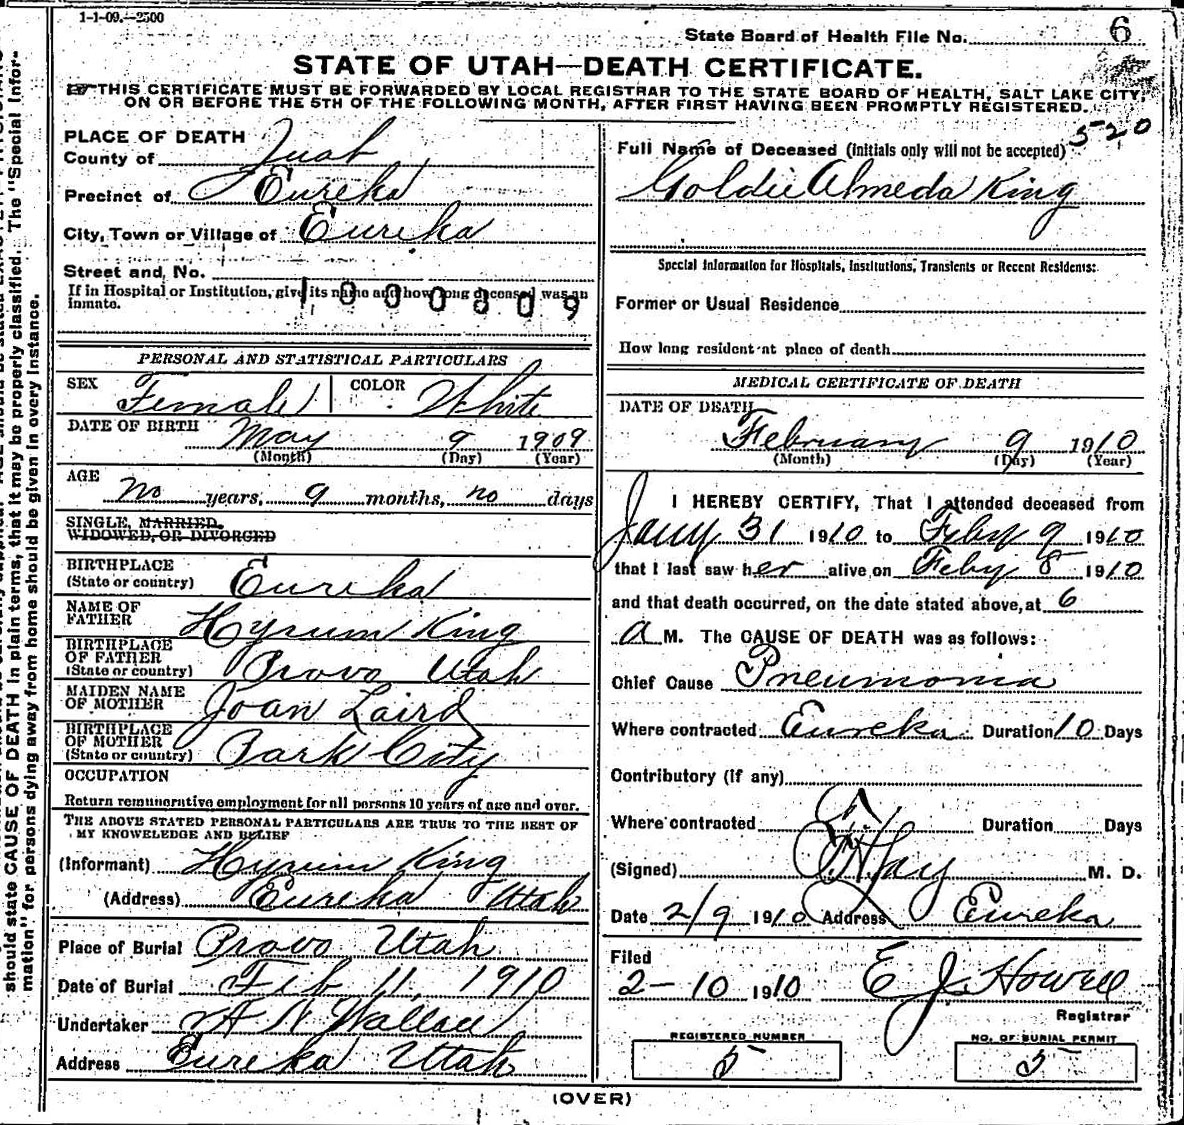 1-1-09.—2500
State Board of Health File No. 6
STATE OF UTAH—DEATH CERTIFICATE.
THIS CERTIFICATE MUST BE FORWARDED BY LOCAL REGISTRAR TO THE STATE BOARD OF HEALTH, SALT LAKE CITY,
ON OR BEFORE THE 5TH OF THE FOLLOWING MONTH, AFTER FIRST HAVING BEEN PROMPTLY REGISTERED.
PLACE OF DEATH
County of Juab
Precinct of Eureka
City, Town or Village of Eureka
Street and No.
If in Hospital or Institution, give its name and how long deceased was an
inmate.
1000809
PERSONAL AND STATISTICAL PARTICULARS
SEX Female COLOR White
DATE OF BIRTH May 9 1909
(Month) (Day) (Year)
AGE
no years, 9 months, no days
SINGLE, MARRIED,
WIDOWED, OR DIVORCED
BIRTHPLACE
(State or country) Eureka
NAME OF
FATHER Hyrum King
BIRTHPLACE
OF FATHER
(State or country) Provo Utah
MAIDEN NAME
OF MOTHER Joan Laird
BIRTHPLACE
OF MOTHER
(State or country) Park City
OCCUPATION
Return remunerative employment for all persons 10 years of age and over.
THE ABOVE STATED PERSONAL PARTICULARS ARE TRUE TO THE BEST OF
MY KNOWELEDGE AND BELIEF
(Informant) Hyrum King
(Address) Eureka Utah
Place of Burial Provo Utah
Date of Burial Feb 11, 1910
Undertaker A N Wallace
Address Eureka Utah
520
Full Name of Deceased (Initials only will not be accepted)
Goldie Almeda King
Special Information for Hospitals, Institutions, Transients or Recent Residents:
Former or Usual Residence
How long resident at place of death
MEDICAL CERTIFICATE OF DEATH
DATE OF DEATH
February 9 1910
(Month) (Day) (Year)
I HEREBY CERTIFY, That I attended deceased from
Jany 31 1910 to Feby 9 1910
that I last saw her alive on Feby 8 1910
and that death occurred, on the date stated above, at 6
a M. The CAUSE OF DEATH was as follows:
Chief Cause Pneumonia
Where contracted Eureka Duration 10 Days
Contributory (If any)
Where contracted Duration Days
(Signed) M. D.
Date 2/9 1910 Address Eureka
Filed
2-10 1910 E J Howell
Registrar
REGISTERED NUMBER
5
NO. OF BURIAL PERMIT
5
(OVER)
should state CAUSE OF DEATH in plain terms, that it may be properly classified. The "Special Infor-
mation" for persons dying away from home should be given in every instance.